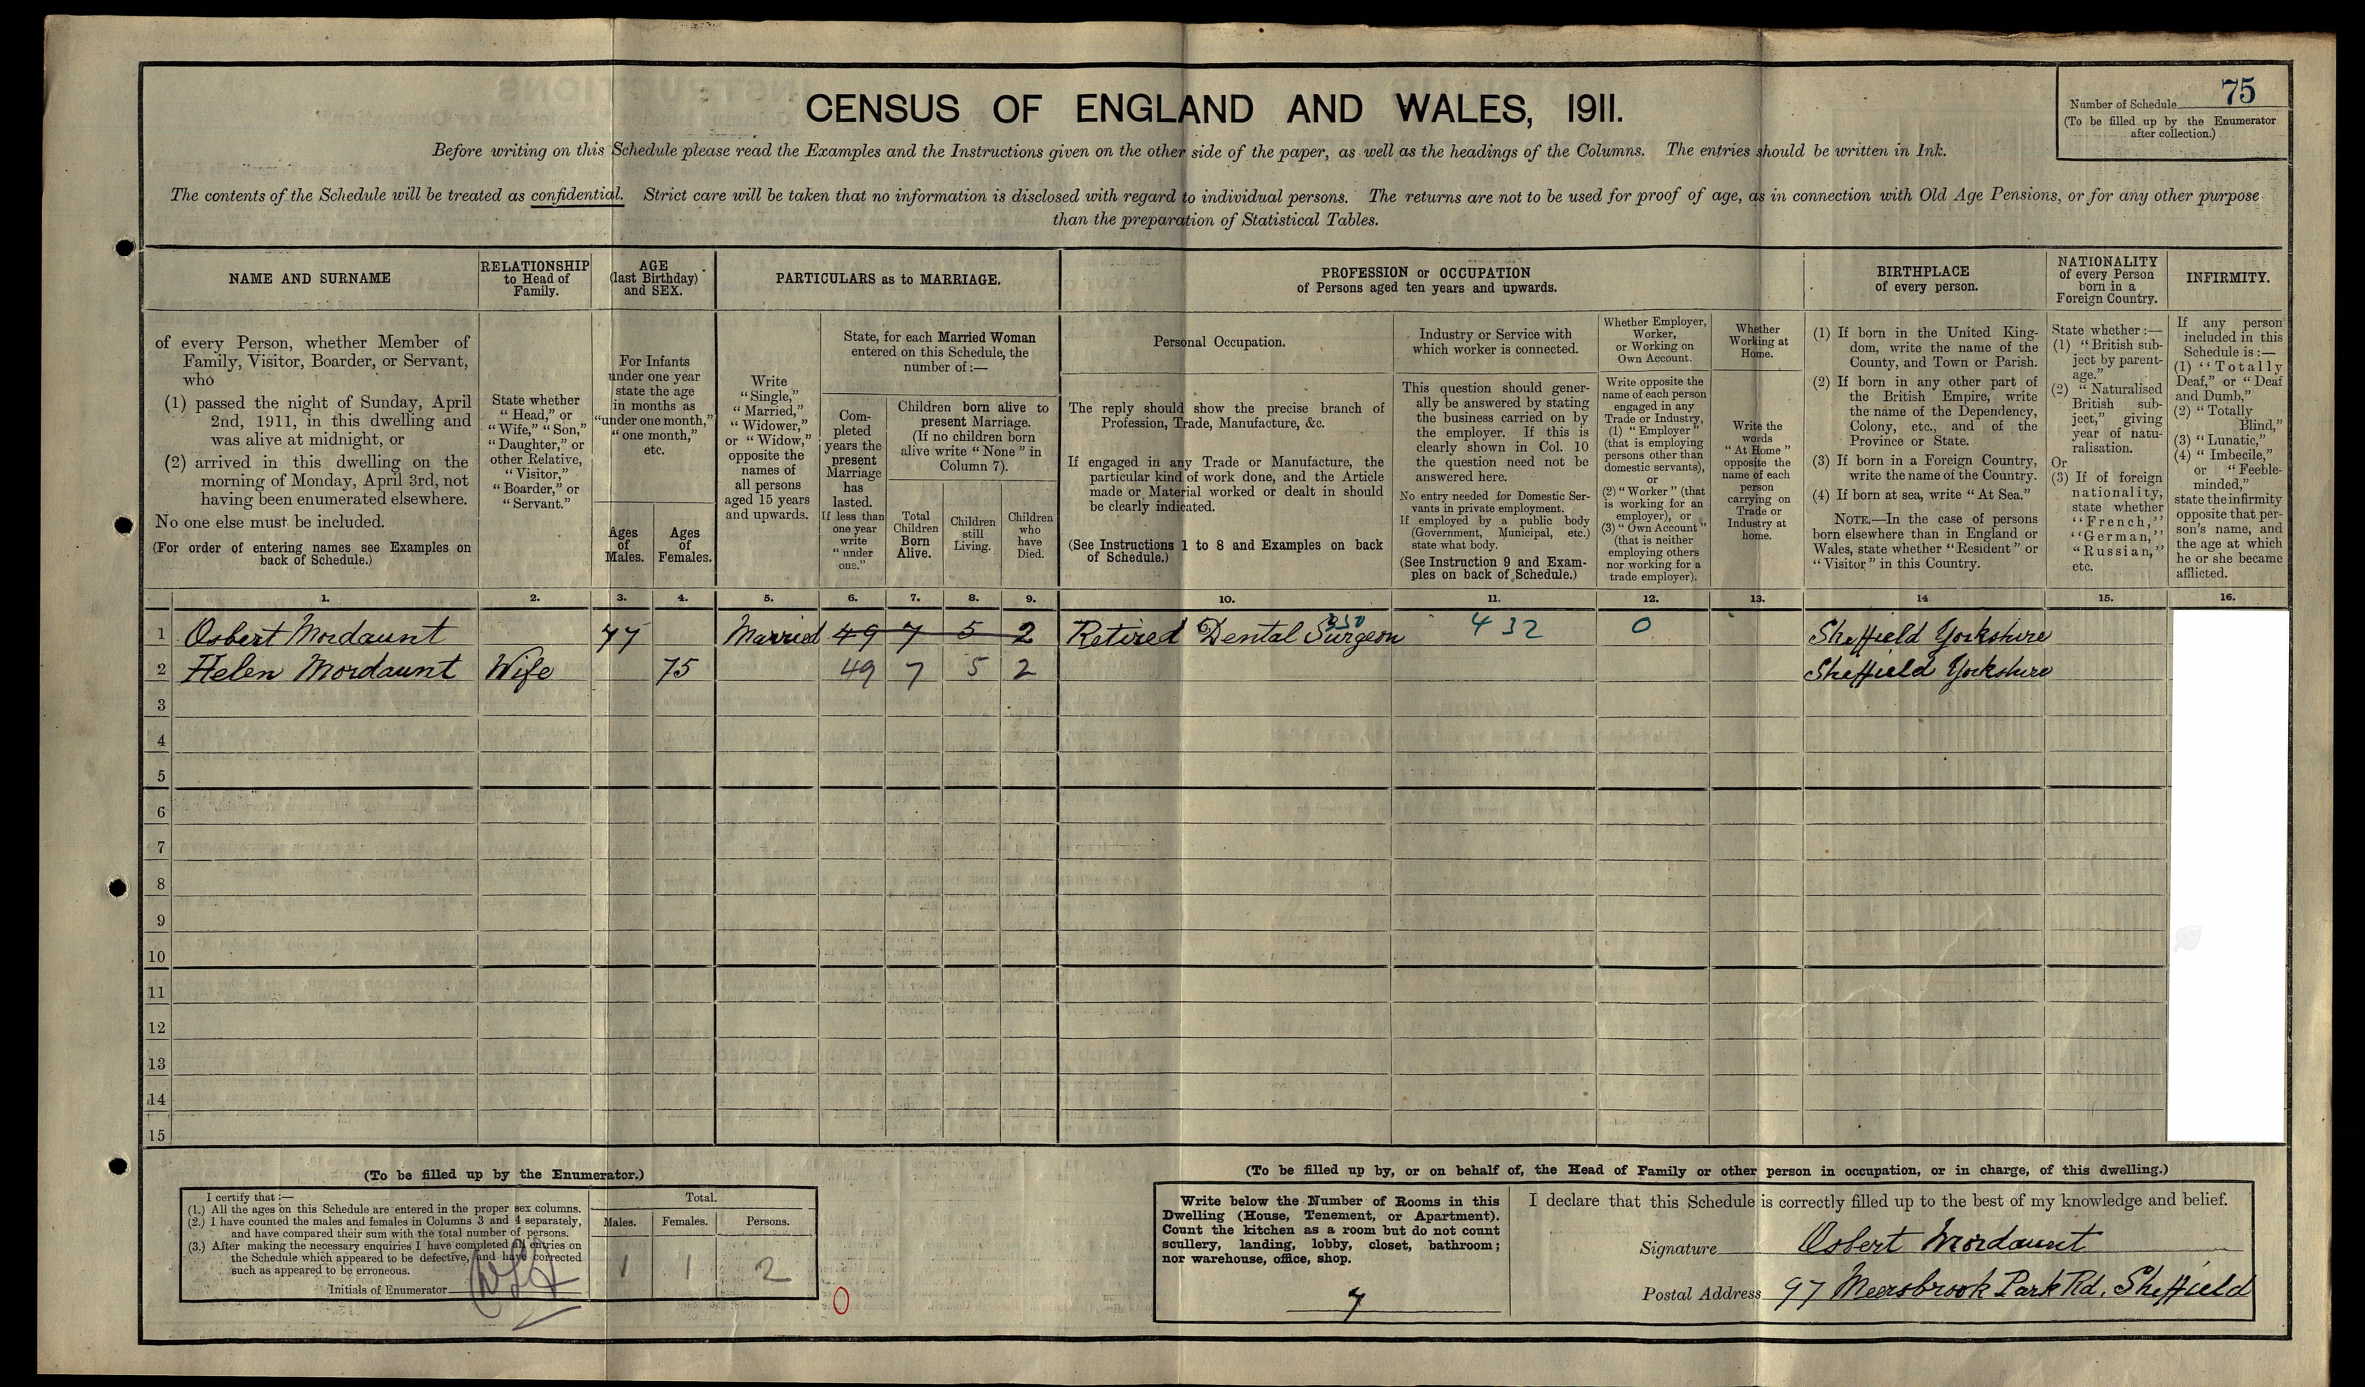 CENSUS OF ENGLAND AND WALES, 1911.
Number of Schedule 75
(To be filled up by the Enumerator
after collection.)
Before writing on this Schedule please read the Examples and the Instructions given on the other side of the paper, as well as the headings of the Columns. The entries should be written in Ink.
The contents of the Schedule will be treated as confidential. Strict care will be taken that no information is disclosed with regard to individual persons. The returns are not to be used for proof of age, as in connection with Old Age Pensions, or for any other purpose
than the preparation of Statistical Tables.
NAME AND SURNAME
of every Person, whether Member of
Family, Visitor, Boarder, or Servant,
who
(1) passed the night of Sunday, April
2nd, 1911, in this dwelling and
was alive at midnight, or
(2) arrived in this dwelling on the
morning of Monday, April 3rd, not
having been enumerated elsewhere.
No one else must be included.
(For order of entering names see Examples on
back of Schedule.)
RELATIONSHIP
to Head of
Family.
State whether
"Head," or
"Wife," "Son,"
"Daughter," or
other Relative,
"Visitor,"
"Boarder," or
"Servant."
AGE
(last Birthday)
and SEX.
For Infants
under one year
state the age
in months as
"under one month,"
"one month,"
etc.
Ages
of
Males.
Ages
of
Females.
PARTICULARS as to MARRIAGE.
Write
"Single,"
"Married,"
"Widower,"
or "Widow,"
opposite the
names of
all persons
aged 15 years
and upwards.
State, for each Married Woman
entered on this Schedule, the
number of:—
Com-
pleted
years the
present
Marriage
has
lasted.
If less than
one year
write
"under
one."
Children born alive to
present Marriage.
(If no children born
alive write "None" in
Column 7).
Total
Children
Born
Alive.
Children
still
Living.
Children
who
have
Died.
PROFESSION or OCCUPATION
of Persons aged ten years and upwards.
Personal Occupation.
The reply should show the precise branch of
Profession, Trade, Manufacture, &c.
If engaged in any Trade or Manufacture, the
particular kind of work done, and the Article
made or Material worked or dealt in should
be clearly indicated.
(See Instructions 1 to 8 and Examples on back
of Schedule.)
Industry or Service with
which worker is connected.
This question should gener-
ally be answered by stating
the business carried on by
the employer. If this is
clearly shown in Col. 10
the question need not be
answered here.
No entry needed for Domestic Ser-
vants in private employment.
If employed by a public body
(Government, Municipal, etc.)
state what body.
(See Instruction 9 and Exam-
ples on back of Schedule.)
Whether Employer,
Worker,
or Working on
Own Account.
Write opposite the
name of each person
engaged in any
Trade or Industry,
(1) "Employer"
(that is employing
persons other than
domestic servants),
or
(2) "Worker" (that
is working for an
employer), or
(3) "Own Account"
(that is neither
employing others
nor working for a
trade employer).
Whether
Working at
Home.
Write the
words
"At Home"
opposite the
name of each
person
carrying on
Trade or
Industry at
home.
BIRTHPLACE
of every person.
(1) If born in the United King-
dom, write the name of the
County, and Town or Parish.
(2) If born in any other part of
the British Empire, write
the name of the Dependency,
Colony, etc., and of the
Province or State.
(3) If born in a Foreign Country,
write the name of the Country.
(4) If born at sea, write "At Sea."
NOTE.—In the case of persons
born elsewhere than in England or
Wales, state whether "Resident" or
"Visitor" in this Country.
NATIONALITY
of every Person
born in a
Foreign Country.
State whether:—
(1) "British sub-
ject by parent-
age."
(2) "Naturalised
British sub-
ject," giving
year of natu-
ralisation.
Or
(3) If of foreign
nationality,
state whether
"French,"
"German,"
"Russian,"
etc.
INFIRMITY.
If any person
included in this
Schedule is:—
(1) "Totally
Deaf," or "Deaf
and Dumb,"
(2) "Totally
Blind,"
(3) "Lunatic,"
(4) "Imbecile,"
or "Feeble-
minded,"
state the infirmity
opposite that per-
son's name, and
the age at which
he or she became
afflicted.
1. 2. 3. 4. 5. 6. 7. 8. 9. 10. 11. 12. 13. 14 15. 16.
1 Osbert Mordaunt 77 Married 49 7 5 2 Retired Dental Surgeon 432 0 Sheffield Yorkshire
2 Helen Mordaunt Wife 75 49 7 5 2 Sheffield Yorkshire
3
4
5
6
7
8
9
10
11
12
13
14
15
(To be filled up by the Enumerator.)
I certify that:—
(1.) All the ages on this Schedule are entered in the proper sex columns.
(2.) I have counted the males and females in Columns 3 and 4 separately,
and have compared their sum with the total number of persons.
(3.) After making the necessary enquiries I have completed all entries on
the Schedule which appeared to be defective, and have corrected
such as appeared to be erroneous.
Initials of Enumerator
Total.
Males. Females. Persons.
1 1 2
0
(To be filled up by, or on behalf of, the Head of Family or other person in occupation, or in charge, of this dwelling.)
Write below the Number of Rooms in this
Dwelling (House, Tenement, or Apartment).
Count the kitchen as a room but do not count
scullery, landing, lobby, closet, bathroom;
nor warehouse, office, shop.
7
I declare that this Schedule is correctly filled up to the best of my knowledge and belief.
Signature Osbert Mordaunt
Postal Address 97 Meersbrook Park Rd, Sheffield